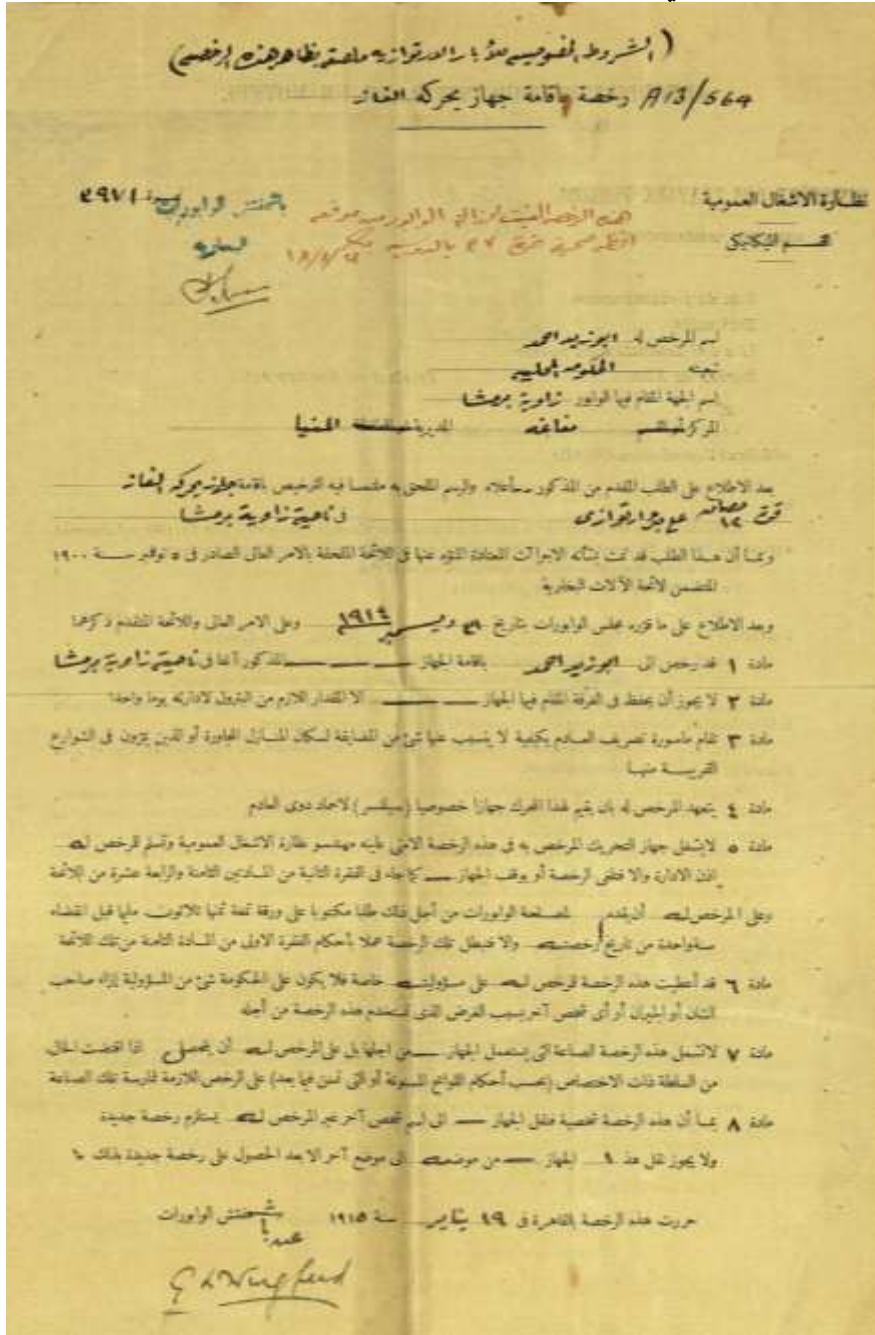 (الشروط الخصوصيه للآبار الارتوازيه ملصقه بظاهر هذه الرخصه)
A13/564 رخصة باقامة جهاز يحركه الغاز
نظارة الاشغال العمومية
قسم الميكانيكى
نمرة ٣٩٧١
باشمفتش الوابورات
هذه الرخصة الغيت لزوال الوابور من موقعه
اسم المرخص له ابوزيد احمد
تبعيته الحكومه المحليه
اسم الجهة المقام فيها الوابور زاوية برمشا
المركز مغاغه المديرية المنيا
بعد الاطلاع على الطلب المقدم من المذكور بأعلاه والرسم الملحق به ملتمسا فيه الترخيص باقامة جهاز يحركه الغاز
قوة ١٢ حصان على بئر ارتوازى فى ناحية زاوية برمشا
وبما أن هذا الطلب قد تمت بشأنه الاجراآت المعتادة المنوه عنها فى اللائحة الملحقة بالامر العالى الصادر فى ٥ نوفمبر سنة ١٩٠٠
المتضمن لائحة الآلات البخارية
وبعد الاطلاع على ما قرره مجلس الوابورات بتاريخ ديسمبر ١٩١٤ وعلى الامر العالى واللائحة المتقدم ذكرهما
مادة ١ قد رخص الى ابوزيد احمد باقامة الجهاز المذكور آنفا فى ناحية زاوية برمشا
مادة ٢ لا يجوز أن يحفظ فى الغرفة المقام فيها الجهاز الا المقدار اللازم من البترول لادارته يوما واحدا
مادة ٣ تقام ماسورة تصريف العادم بكيفية لا يتسبب عنها شئ من المضايقة لسكان المنازل المجاورة أو الذين يمرون فى الشوارع
القريبة منها
مادة ٤ يتعهد المرخص له بان يقيم لهذا المحرك جهازا خصوصيا (سيلنسر) لاخماد دوى العادم
مادة ٥ لا يشغل جهاز التحريك المرخص به فى هذه الرخصة الا متى عاينه مهندسو نظارة الاشغال العمومية وتسلم المرخص له
اذن الادارة والا فتلغى الرخصة أو يوقف الجهاز كما جاء فى الفقرة الثانية من المادتين الثامنة والرابعة عشرة من اللائحة
وعلى المرخص له أن يقدم لمصلحة الوابورات من أجل ذلك طلبا مكتوبا على ورقة تمغة ثمنها ثلاثون مليما قبل انقضاء
سنة واحدة من تاريخ رخصته والا فتبطل تلك الرخصة عملا بأحكام الفقرة الاولى من المادة الثامنة من تلك اللائحة
مادة ٦ قد أعطيت هذه الرخصة للمرخص له على مسؤوليته خاصة فلا يكون على الحكومة شئ من المسؤولية إزاء صاحب
الشان أو الجيران أو أى شخص آخر بسبب الغرض الذى تستخدم هذه الرخصة من أجله
مادة ٧ لا تشمل هذه الرخصة الصناعة التى يستعمل الجهاز من اجلها بل على المرخص له أن يتحصل اذا اقتضت الحال
من السلطة ذات الاختصاص (بحسب أحكام اللوائح المسنونة أو التى تسن فيما بعد) على الرخص اللازمة لممارسة تلك الصناعة
مادة ٨ بما أن هذه الرخصة شخصية فنقل الجهاز الى اسم شخص آخر غير المرخص له يستلزم رخصة جديدة
ولا يجوز نقل هذا الجهاز من موضعه الى موضع آخر الا بعد الحصول على رخصة جديدة بذلك
حررت هذه الرخصة بالقاهرة فى ١٩ يناير سنة ١٩١٥
باشمفتش الوابورات